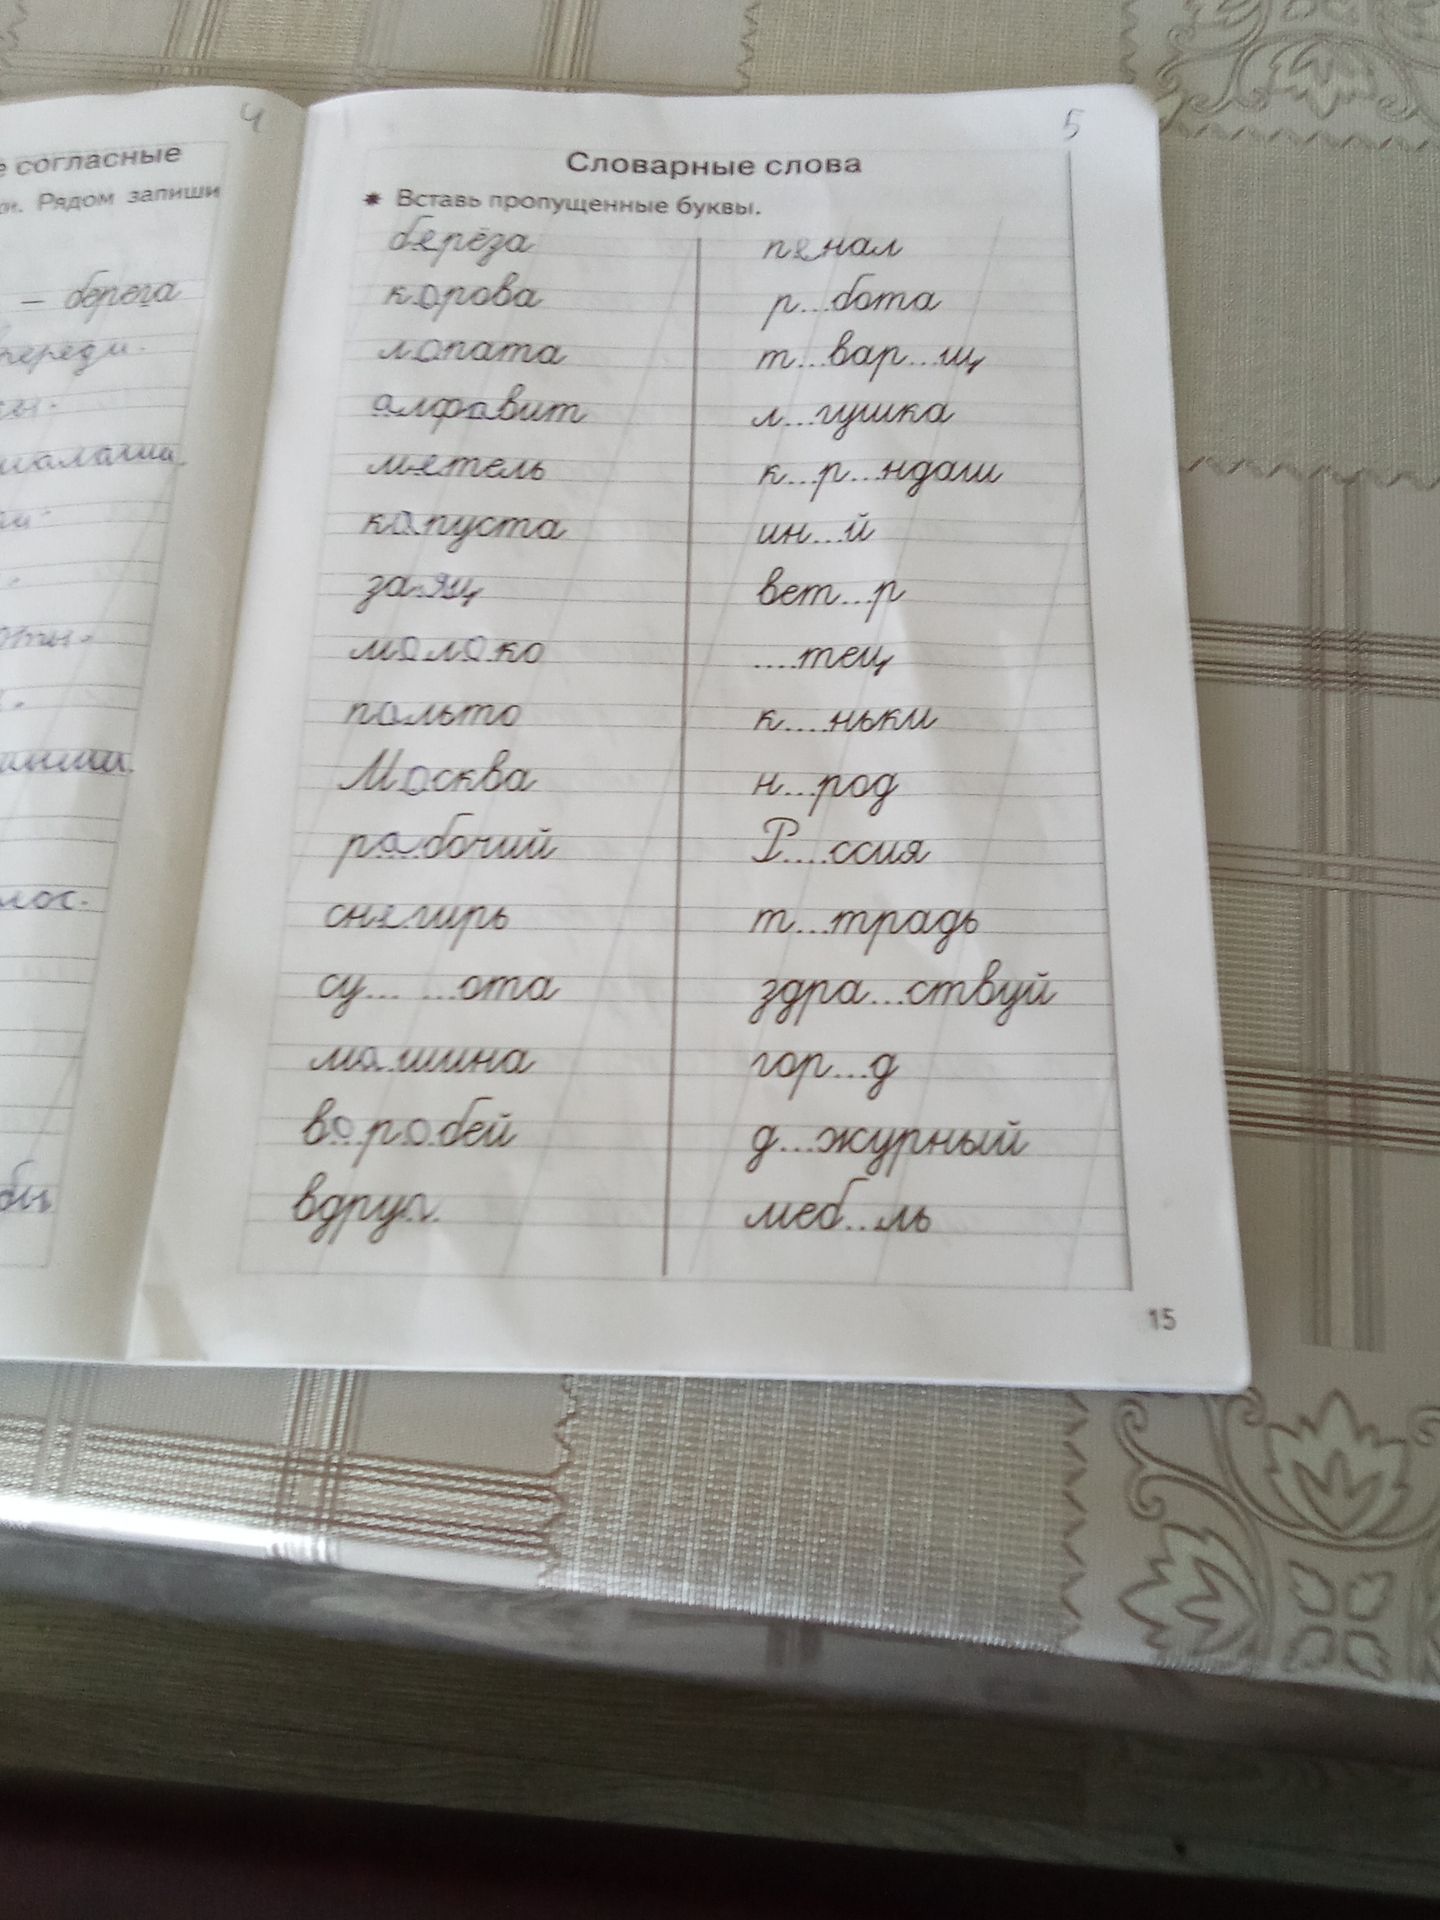 4
е согласные
ки. Рядом запиши
– берега
переди.
сы.
шалаши.
лос.
бы
5
Словарные слова
* Вставь пропущенные буквы.
берёза
корова
лопата
алфавит
метель
капуста
заяц
молоко
пальто
Москва
рабочий
снегирь
су... ...ота
машина
воробей
вдруг
пенал
р...бота
т...вар...щ
л...гушка
к...р...ндаш
ин...й
вет...р
....тец
к....ньки
н...род
Р....ссия
т...традь
здра...ствуй
гор...д
д...журный
меб...ль
15